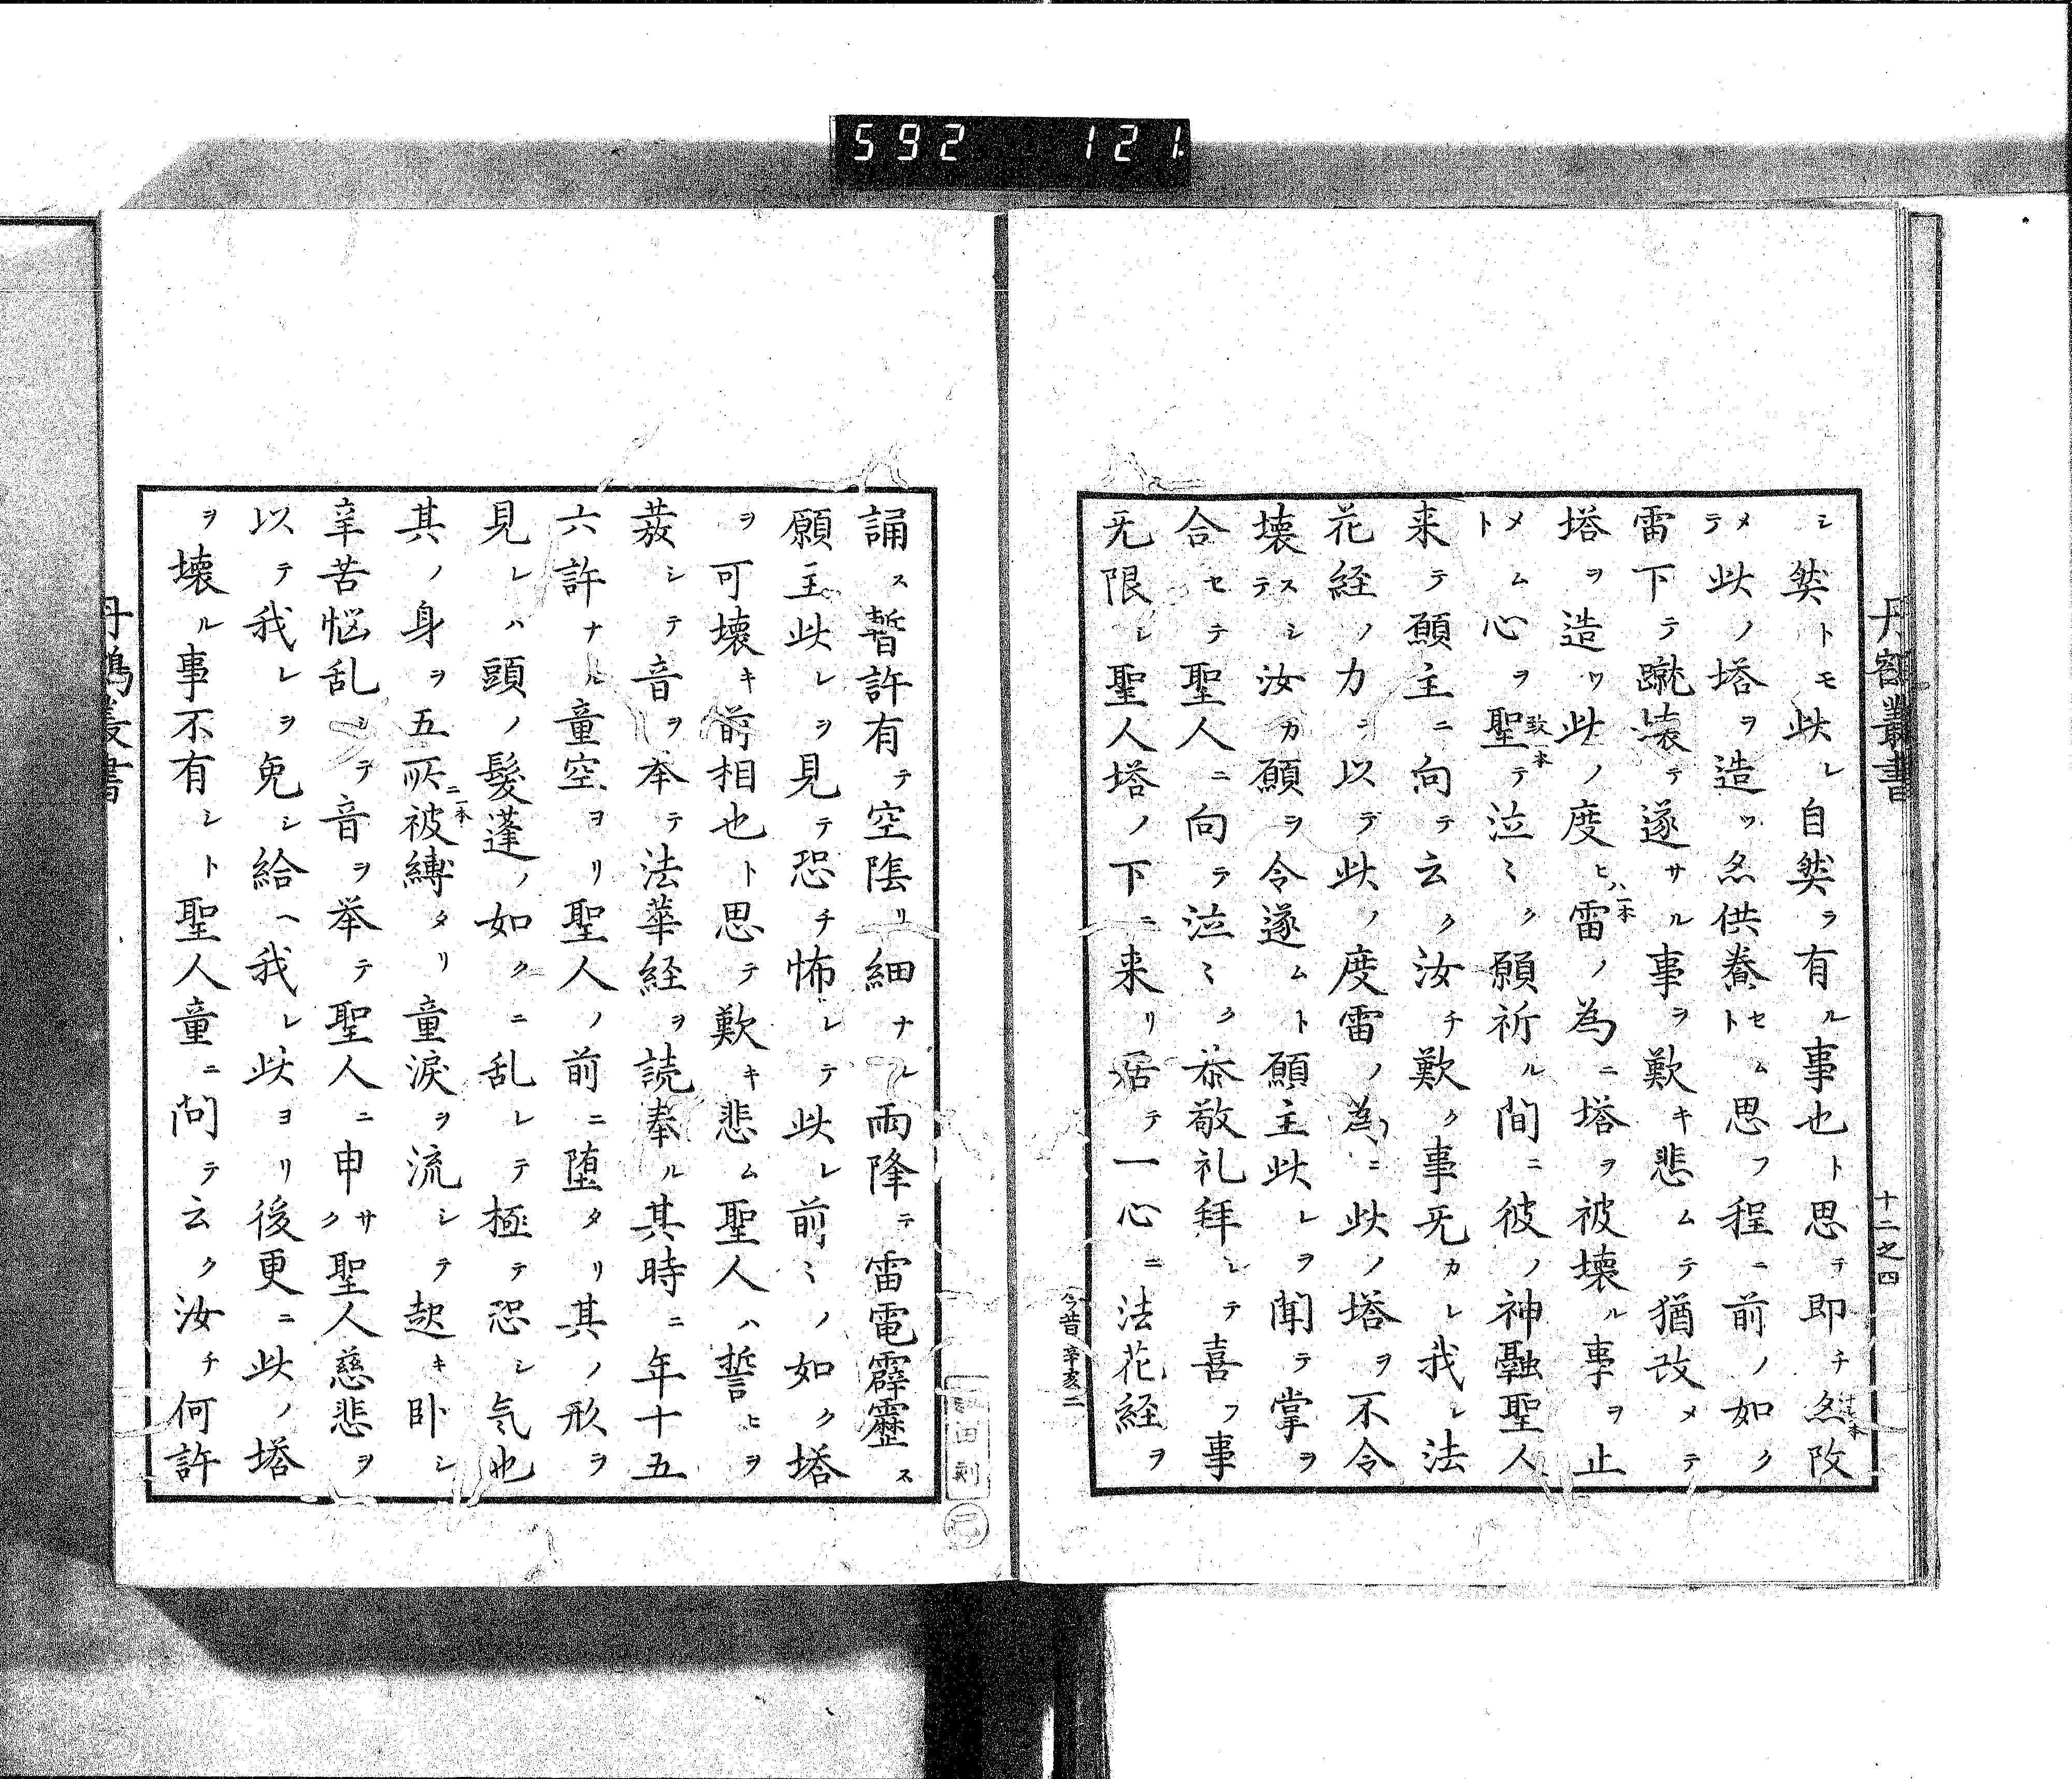 592 121
丹鶴叢書
十二之四
シ然トモ此レ自然ラ有ル事也ト思テ即チ亦改
メテ此ノ塔ヲ造ツ亦供養セムト思フ程ニ前ノ如ク
雷下テ蹴壊テ遂サル事ヲ歎キ悲ムテ猶改メテ
塔ヲ造ツ此ノ度ヒハ一本雷ノ為ニ塔ヲ被壊ル事ヲ止
メムト心ヲ聖致一本テ泣ミク願祈ル間ニ彼ノ神融聖人
来テ願主ニ向テ云ク汝チ歎ク事旡カレ我レ法
花経ノ力ニ以テ此ノ度雷ノ為ニ此ノ塔ヲ不令
壊スシテ汝カ願ヲ令遂ムト願主此レヲ聞テ掌ヲ
合セテ聖人ニ向テ泣ミク恭敬礼拜シテ喜フ事
旡限シ聖人塔ノ下ニ来リ居テ一心ニ法花経ヲ
今昔 辛亥二
誦ス暫許有テ空陰リ細ナレ雨降テ雷電霹靂ス
願主此レヲ見テ恐チ怖レテ此レ前ミノ如ク塔
ヲ可壊キ前相也ト思テ歎キ悲ム聖人ハ誓ヒヲ
發シテ音ヲ夲テ法華経ヲ読奉ル其時ニ年十五
六許ナル童空ヨリ聖人ノ前ニ堕タリ其ノ形ヲ
見レハ頭ノ髮蓬ノ如クニ乱レテ極テ恐シ気也
其ノ身ヲ五所ニ一本被縛タリ童涙ヲ流シテ起キ卧シ
辛苦悩乱シテ音ヲ举テ聖人ニ申サク聖人慈悲ヲ
以テ我レヲ免シ給ヘ我レ此ヨリ後更ニ此ノ塔
ヲ壊ル事不有シト聖人童ニ問テ云ク汝チ何許
丹鶴叢書